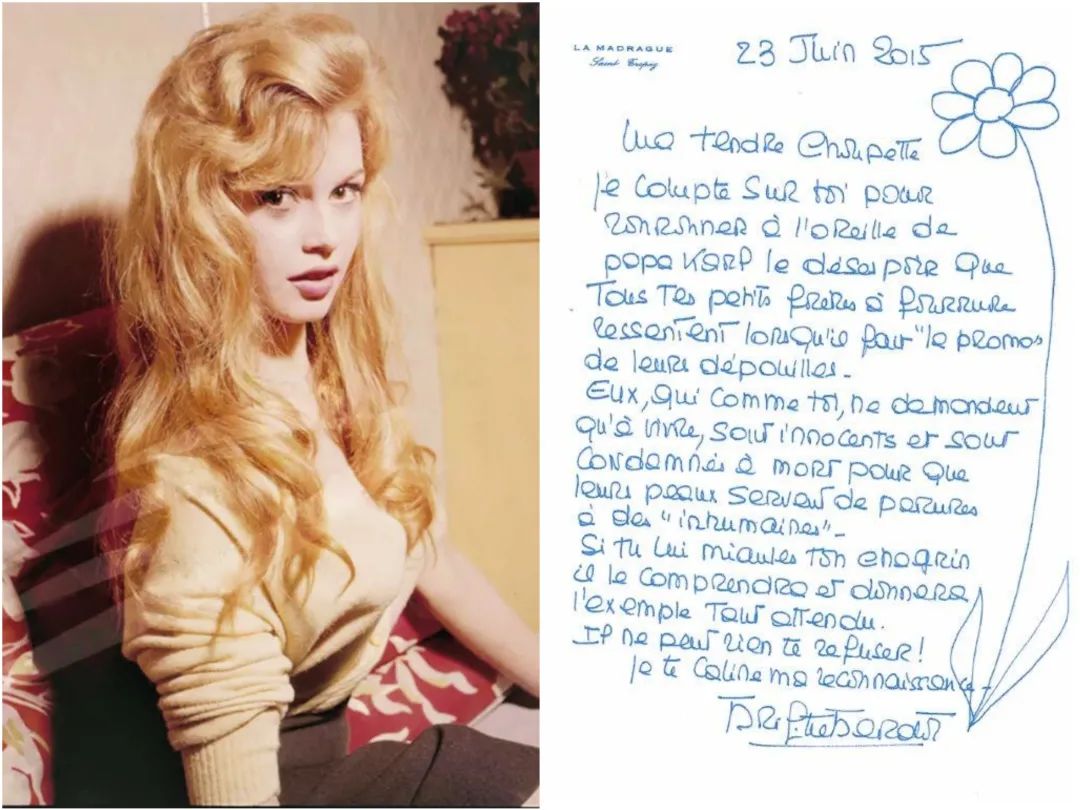 LA MADRAGUE
Saint Tropez
23 Juin 2015
Ma tendre Choupette
Je compte sur toi pour
ronronner à l'oreille de
papa KARL le désespoir que
Tous Tes petits frères à fourrure
ressentent lorsqu'il fait "la promo"
de leurs dépouilles_
Eux, qui comme toi, ne demandent
qu'à vivre, sont innocents et sont
condamnés à mort pour que
leurs peaux servent de parures
à des "inhumaines"_
Si tu lui miaules ton chagrin
il le comprendra et donnera
l'exemple Tant attendu.
Il ne peut rien te refuser!
Je te câline ma reconnaissance_
Brigitte Bardot